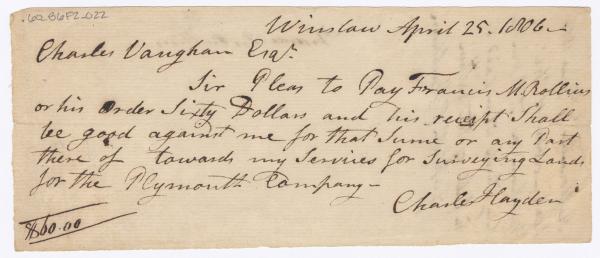 .62B6F2.022
Winslow April 25. 1806
Charles Vaughan Esqr.
Sir Pleas to Pay Francis M. Rollins
or his order Sixty Dollars and his receipt Shall
be good against me for that Sume or any Part
there of towards my Services for Surveying Lands
for the Plymouth Company
Charles Hayden
$60.00